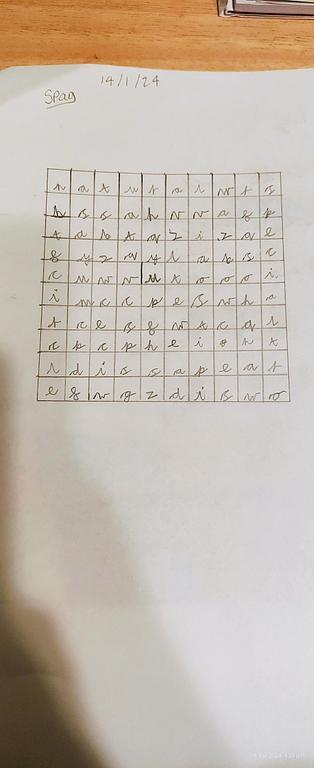 14/1/24
Spag
n a t u r a l w t s
b s s a h v v a g p
t a b t q z i z a e
g y z a y l a b s c
c u w v u x o o o i
i m c c p e s w h a
t c e s g w t c a l
c p c p h e i o h t
l d i s s a p e a t
e g w g z d i s w o